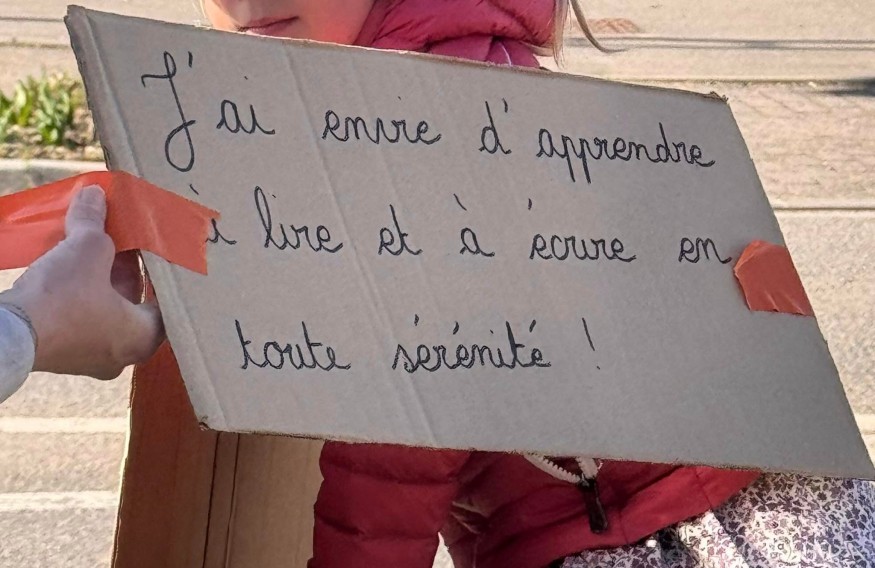 J'ai envie d'apprendre
à lire et à écrire en
toute sérénité !